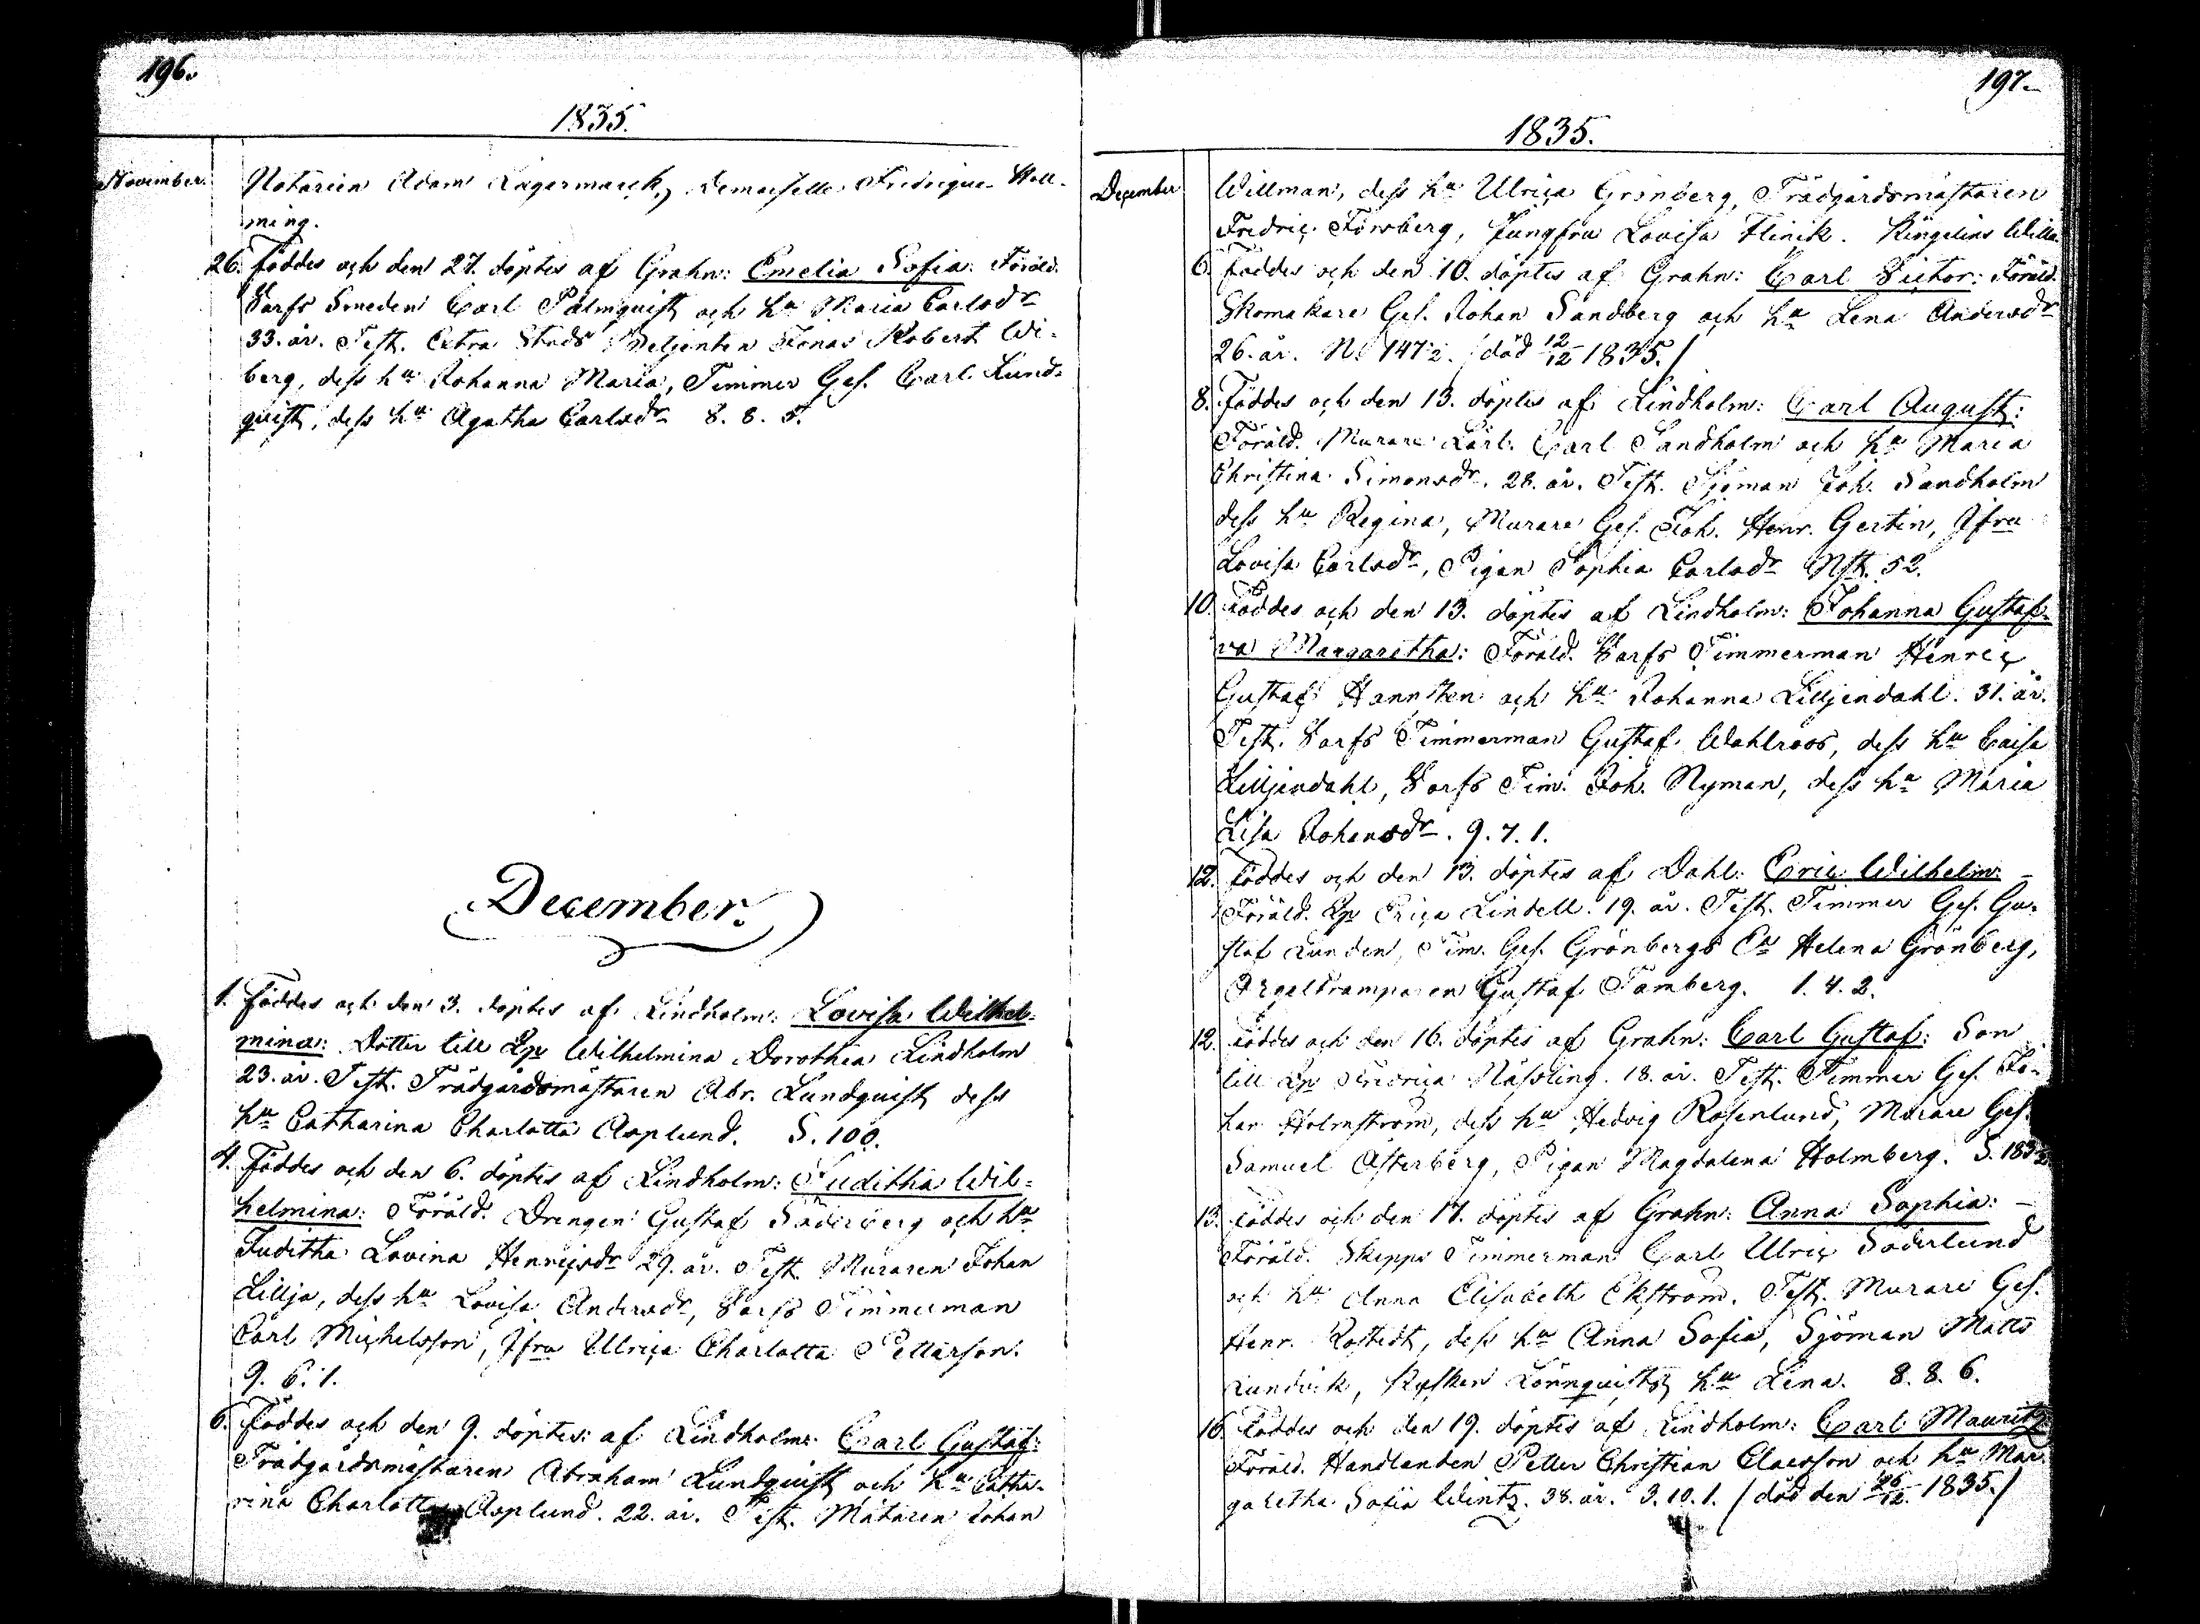 196.
1835.
November.
Notarien Adam Lagermarck, Demoiselle Fredrique Hell-
ming.
26. Föddes och den 27. döptes af Grahn: Emelia Sofia: Föräld.
Varfs Smeden Carl Palmquist och hu Maria Carlsdr
33. år. Test. Extra Stads Betjenten Jonas Robert Wi-
berg, dess hu Johanna Maria, Timmer Ges. Carl Lund-
quist, dess hu Agatha Carlsdr 8. 8. 5.
December.
1. Föddes och den 3. döptes af Lindholm: Lovisa Wilhel-
mina: Dotter till Lp Wilhelmina Dorothea Lindholm
23. år. Test. Trädgårdsmästaren Abr. Lundquist dess
hu Catharina Charlotta Asplund. S. 100.
4. Föddes och den 6. döptes af Lindholm: Juditha Wil-
helmina: Föräld. Drengen Gustaf Söderberg och hu
Juditha Lovina Henricsdr 29. år. Test. Muraren Johan
Lillja, dess hu Lovisa Andersdr, Varfs Timmerman
Carl Michelsson, Jfru Ulrica Charlotta Petterson.
9. 6. 1.
6. Föddes och den 9. döptes af Lindholm: Carl Gustaf:
Trädgårdsmästaren Abraham Lundquist och hu Catha-
rina Charlotta Asplund. 22. år. Test. Mätaren Johan
197.
1835.
December
Willman, dess hu Ulrica Grönberg, Trädgårdsmästaren
Fredric Forsberg, Jungfru Lovisa Flinck. Ringelins Willa
6. Föddes och den 10. döptes af Grahn: Carl Victor: Föräld.
Skomakare Ges. Johan Sandberg och hu Lena Andersdr
26. år. N. 147½. /död 12/12 1835./
8. Föddes och den 13. döptes af Lindholm: Carl August:
Föräld. Murare Lärl. Carl Sandholm och hu Maria
Christina Simonsdr. 28. år. Test. Sjöman Joh. Sandholm
dess hu Regina, Murare Ges. Joh. Henr. Gertin, Jfru
Lovisa Carlsdr, Pigan Sophia Carlsdr Nst. 52.
10. Föddes och den 13. döptes af Lindholm: Johanna Gustaf-
va Margaretha: Föräld. Varfs Timmerman Henric
Gustaf Hannsten och hu Johanna Lilljendahl. 31. år.
Test. Varfs Timmerman Gustaf Wahlroos, dess hu Caisa
Lilljendahl, Varfs Tim. Joh. Nyman, dess hu Maria
Lisa Johansdr. 9. 7. 1.
12. Föddes och den 13. döptes af Dahl: Eric Wilhelm: –
Föräld. Lp Erica Lindell. 19. år. Test. Timmer Ges. Gu-
staf Lunden, Tim. Ges. Grönbergs Ea Helena Grönberg,
Orgeltramparen Gustaf Tamberg. 1. 4. 2.
12. Föddes och den 16. döptes af Grahn: Carl Gustaf: Son
till Lp Fredrica Nässling. 18. år. Test. Timmer Ges. Jo-
han Holmström, dess hu Hedvig Rosenlund, Murare Ges.
Samuel Österberg, Pigan Magdalena Holmberg. S. 183½
13. Föddes och den 17. döptes af Grahn: Anna Sophia: –
Föräld. Skepps Timmerman Carl Ulric Söderlund
och hu Anna Elisabeth Ekström. Test. Murare Ges.
Henr. Rostedt, dess hu Anna Sofia, Sjöman Matts
Lundvik, Kusken Lönnquists hu Lena. 8. 8. 6.
16. Föddes och den 19. döptes af Lindholm: Carl Mauritz
Föräld. Handlanden Petter Christian Claesson och hu Mar-
garetha Sofia Wintz. 38. år. 3. 10. 1. /död den 26/12. 1835./